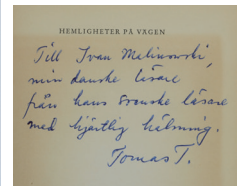 HEMLIGHETER PÅ VÄGEN
Till Ivan Malinowski,
min danske läsare
från hans svenske läsare
med hjärtlig hälsning.
Tomas T.